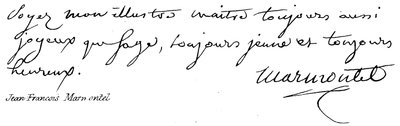 Soyez mon illustre maitre toujours aussi
joyeux que sage, toujours jeune et toujours
heureux.
Marmontel
Jean-François Marmontel